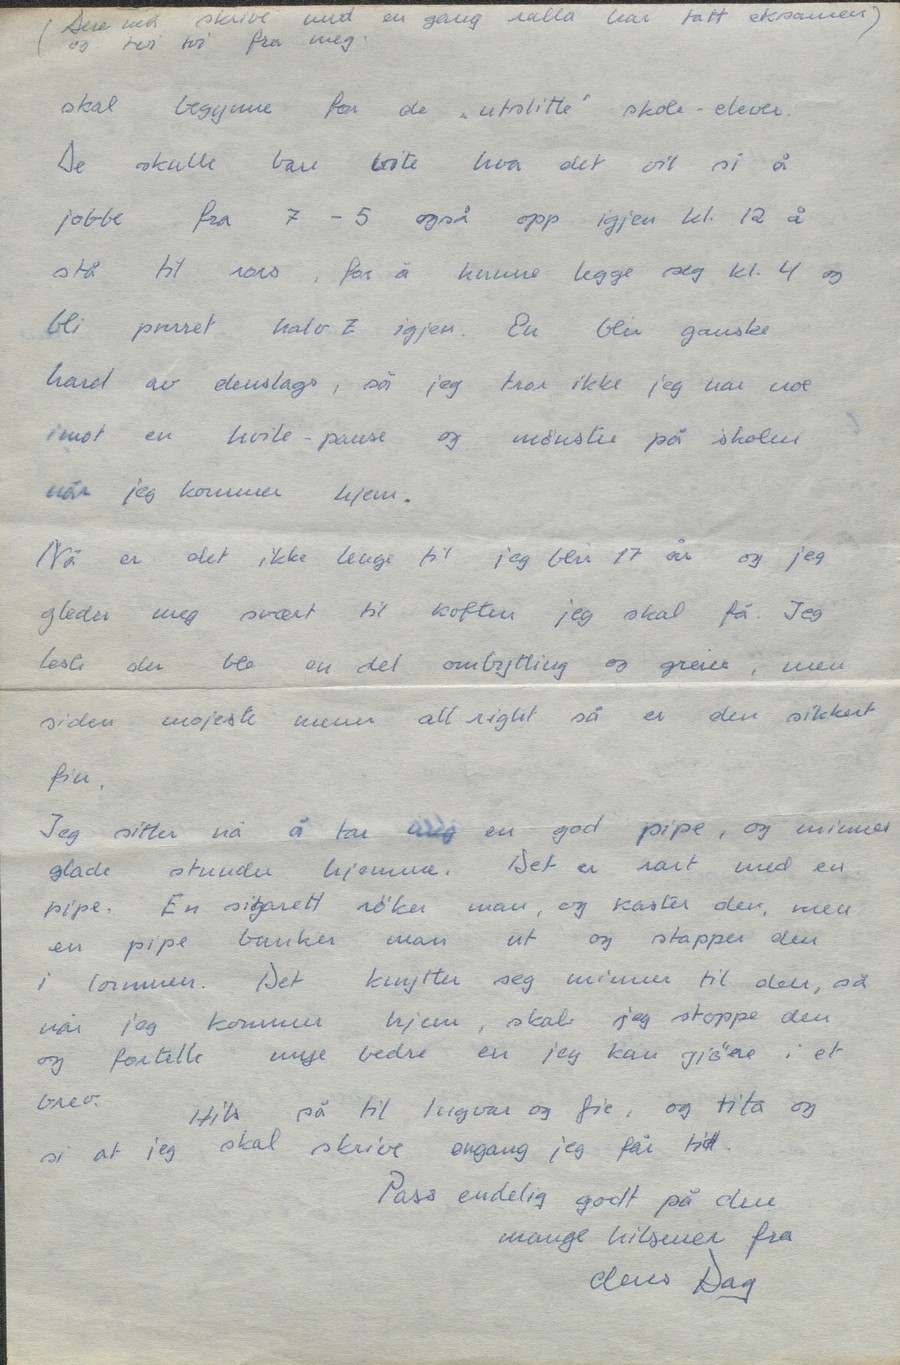 (Dere må skrive med en gang ralla har tatt eksamen)
og tvi tvi fra meg.
skal begynne for de „utslitte" skole-elever.
De skulle bare vite hva det vil si å
jobbe fra 7 - 5 også opp igjen kl. 12 å
stå til rors, for å kunne legge seg kl. 4 og
bli purret halv 7 igjen. En blir ganske
hard av denslags, så jeg tror ikke jeg har noe
imot en hvile-pause og mönstre på skolen
når jeg kommer hjem.
Nå er det ikke lenge til jeg blir 17 år og jeg
gleder meg svært til koften jeg skal få. Jeg
leste der ble en del ombytting og greier, men
siden mojeste mener all right så er den sikkert
fin.
Jeg sitter nå å tar meg en god pipe, og minnes
glade stunder hjemme. Det er rart med en
pipe. En sigarett röker man, og kaster den, men
en pipe banker man ut og stapper den
i lommen. Det knytter seg minner til den, så
når jeg kommer hjem, skal jeg stoppe den
og fortelle mye bedre en jeg kan gjöre i et
brev. Hils så til Ingvar og fie, og tita og
si at jeg skal skrive engang jeg får tid.
Pass endelig godt på den
mange hilsener fra
deres Dag